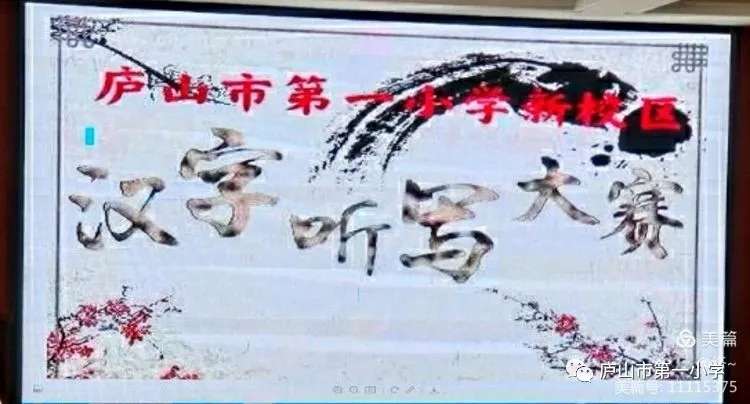 庐山市第一小学新校区
汉字听写大赛
美篇
庐山市第一小学
美篇号: 11115375